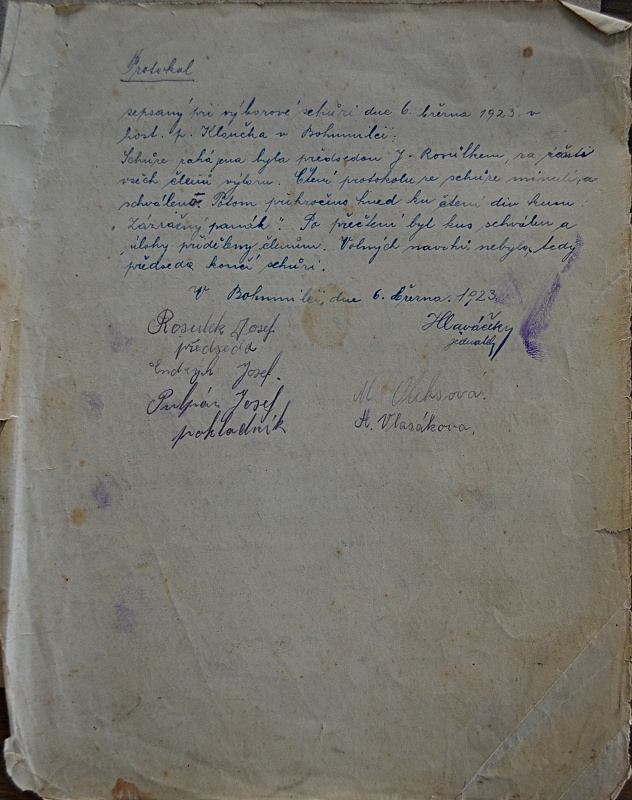 Protokol
sepsaný při výborové schůzi dne 6. března 1923 v
host. p. Kloučka v Bohumilči.
Schůze zahájena byla předsedou J. Rosůlkem, za účasti
všech členů výboru. Čtení protokolu ze schůze minulé
schváleno. Potom přikročeno hned ku čtení div. kusu:
"Zázračný panák". Po přečtení byl kus schválen a
úlohy přiděleny členům. Volných návrhů nebylo, tedy
předseda končí schůzi.
V Bohumilči, dne 6. března 1923
Rosulek Josef
předseda
Hlaváček
jednatel
Josef.
Pulpán Josef
pokladník
M.
A. Vlasáková.